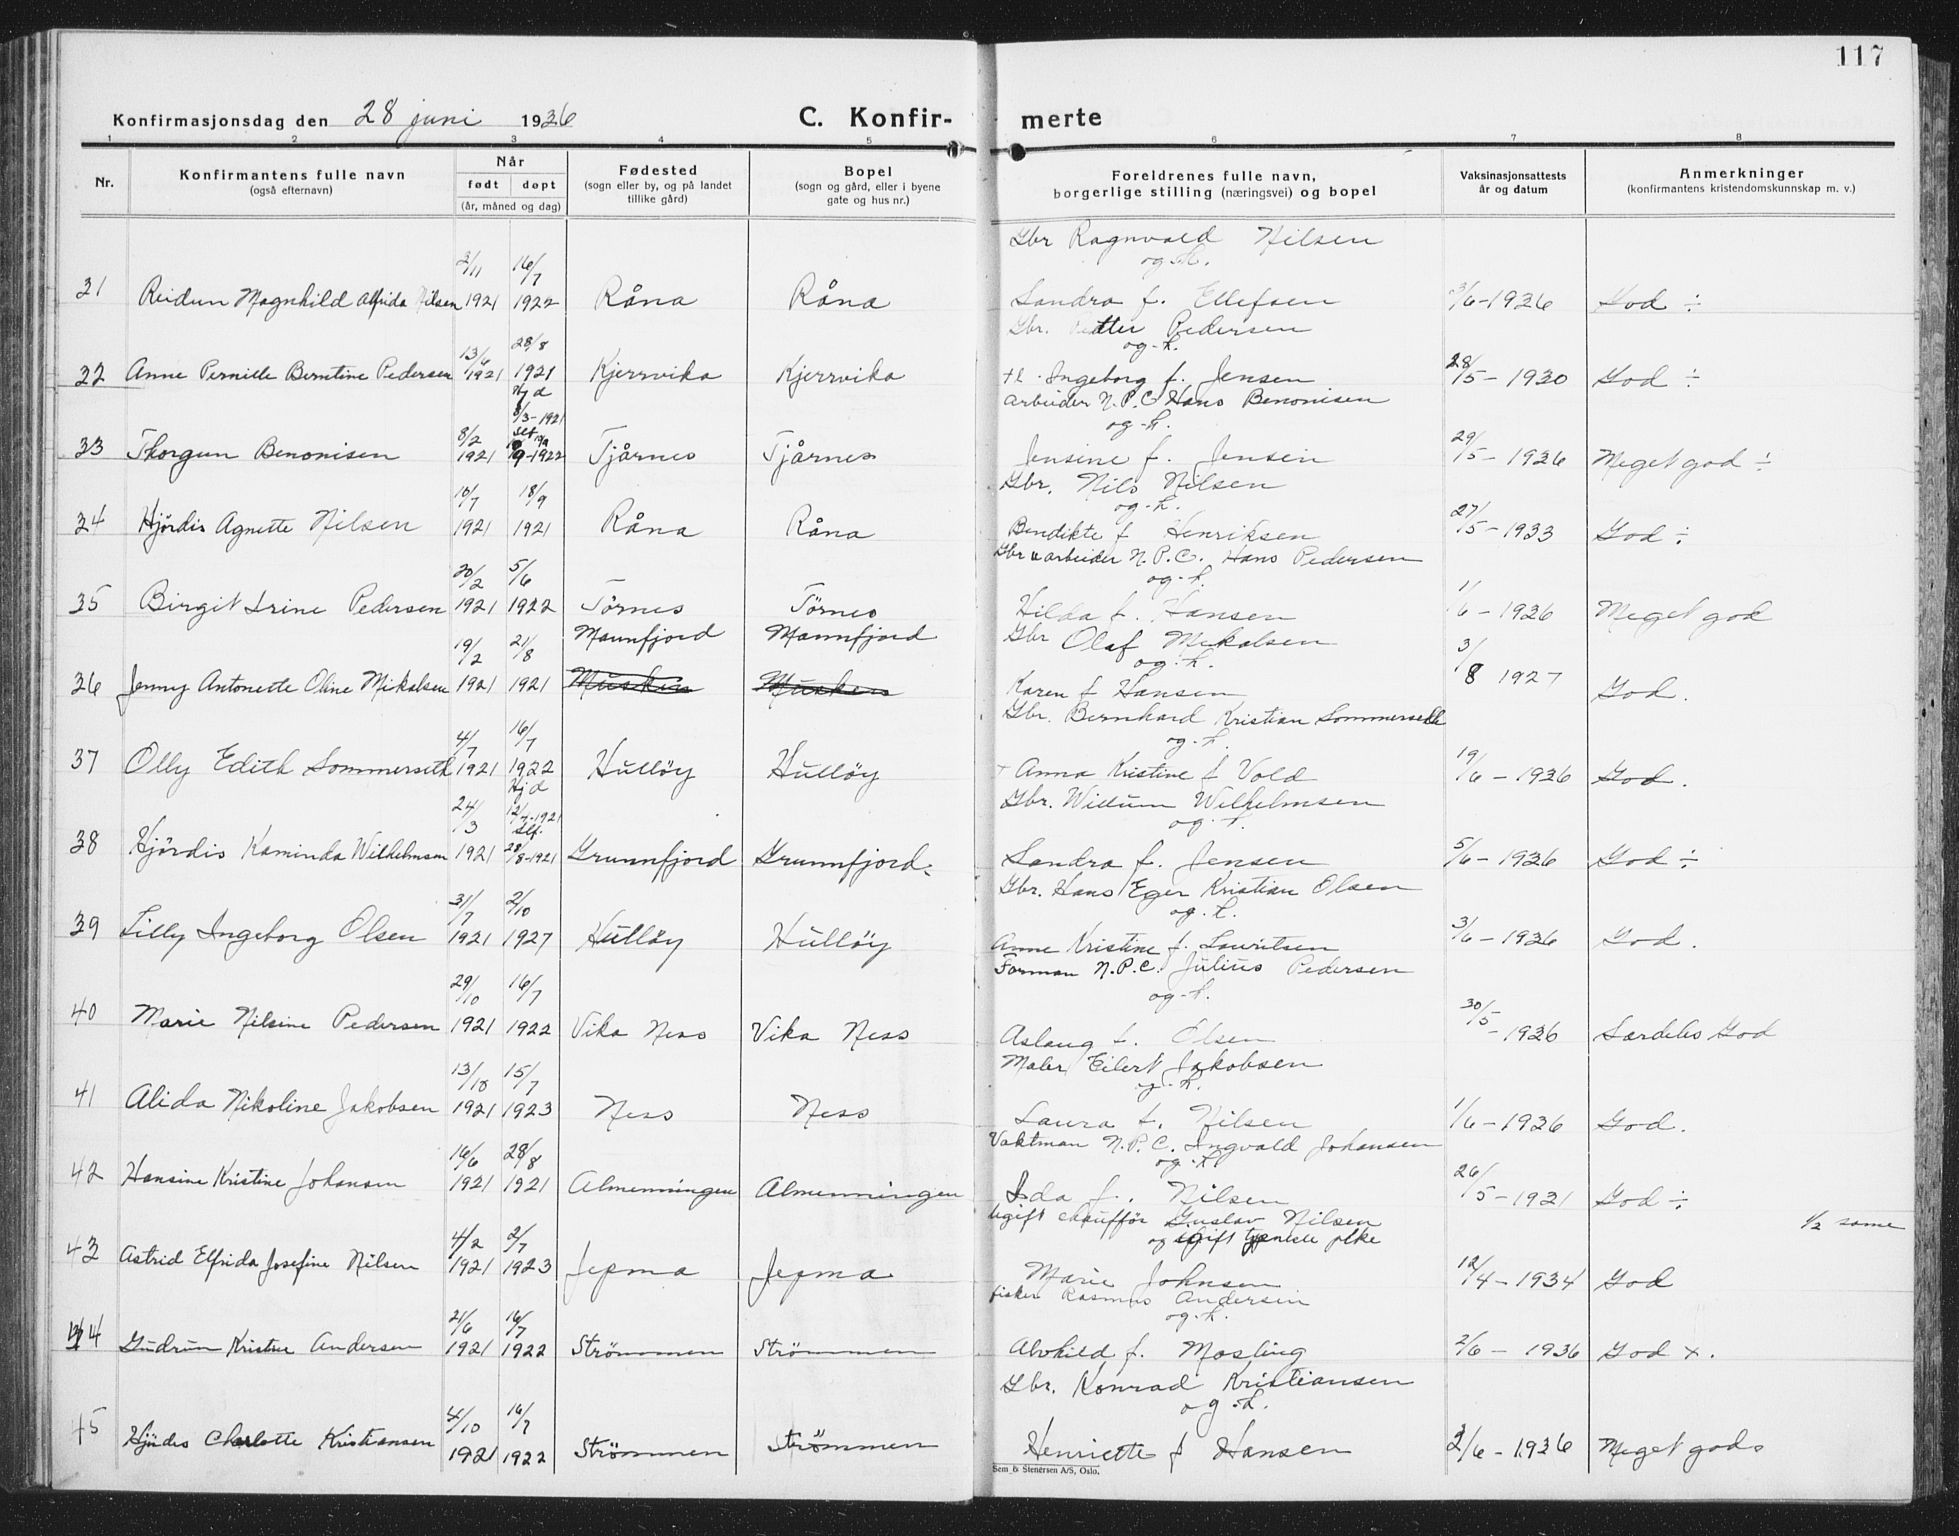 117
Konfirmasjonsdag den 28 juni 1936 C. Konfir- merte
1 2 3 4 5 6 7 8
Nr.
Konfirmantens fulle navn
(også efternavn)
Når
født døpt
(år, måned og dag)
Fødested
(sogn eller by, og på landet
tillike gård)
Bopel
(sogn og gård, eller i byene
gate og hus nr.)
Foreldrenes fulle navn,
borgerlige stilling (næringsvei) og bopel
Vaksinasjonsattests
år og datum
Anmerkninger
(konfirmantens kristendomskunnskap m. v.)
Gbr Ragnvald Nilsen
2/11 16/7 og h.
31 Reidun Magnhild Alfrida Nilsen 1921 1922 Råna Råna Sandra f. Ellefsen 3/6-1936 God ÷
Gbr. Petter Pedersen
13/6 28/8 og h.
32 Anne Pernille Berntine Pedersen 1921 1921 Kjerrvika Kjerrvika Ingeborg f. Jensen 28/5-1930 God ÷
Hjd 8/3-1921 arbeider N.P.C Hans Benonisen
8/2 og h.
33 Thorgun Benonisen 1921 9-1922 Tjårnes Tjårnes Jensine f. Jensen 29/5-1936 Meget god ÷
Gbr. Nils Nilsen
16/7 18/9 og h.
34 Hjördis Agnette Nilsen 1921 1921 Råna Råna Bendikte f Henriksen 27/5-1933 God ÷
Gbr & arbeider N.P.C. Hans Pedersen
20/2 5/6 og h.
35 Birgit Irine Pedersen 1921 1922 Törnes Törnes Hilda f. Hansen 1/6-1936 Meget god
Mannfjord Mannfjord Gbr Olaf Mikalsen
19/2 21/8 og h.
36 Jenny Antonette Oline Mikalsen 1921 1921 Musken Musken Karen f Hansen 3/8 1927 God.
Gbr. Bernhard Kristian Sommerseth
4/7 16/7 og h.
37 Olly Edith Sommerseth 1921 1922 Hulløy Hulløy Anna Kristine f Vold 19/6-1936 God.
Hjd 12/4-1921 Gbr. Willum Wilhelmsen
24/3 Stf. og h.
38 Hjördis Kaminda Wilhelmsen 1921 28/8-1921 Grunnfjord Grunnfjord. Sandra f. Jensen 5/6-1936 God ÷
Gbr. Hans Eger Kristian Olsen
31/7 2/10 og h.
39 Lilly Ingeborg Olsen 1921 1927 Hulløy Hulløy Anne Kristine f. Lauritsen 3/6-1936 God.
Forman N.P.C. Julius Pedersen
29/10 16/7 og h.
40 Marie Nilsine Pedersen 1921 1922 Vika Ness Vika Ness Aslaug f. Olsen 30/5-1936 Særdeles God
Maler Eilert Jakobsen
13/10 15/7 og h.
41 Alida Nikoline Jakobsen 1921 1923 Ness Ness Laura f. Nilsen 1/6-1936 God.
Vaktman N.P.C. Ingvald Johansen
16/6 28/8 og h.
42 Hansine Kristine Johansen 1921 1921 Almenningen Almenningen Ida f. Nilsen 26/5-1931 God ÷
Ugift chauffør Gustav Nilsen 1/2 same
4/2 2/7 og ugift pike
43 Astrid Elfrida Josefine Nilsen 1921 1923 Jepma Jepma Marie Johnsen 12/4-1934 God
fisker Rasmus Andersen
21/6 16/7 og h.
44 Gudrun Kristine Andersen 1921 1922 Strömmen Strömmen Alvhild f. Mosling 2/6-1936 God x.
Gbr. Konrad Kristiansen
4/10 16/7 og h.
45 Hjördis Charlotte Kristiansen 1921 1922 Strömmen Strömmen Henriette f Hansen 2/6-1936 Meget gods
Sem & Stenersen A/S, Oslo.